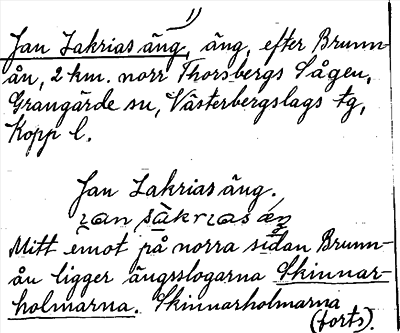 1)
Jan Zakrias äng, äng, efter Brunn-
ån, 2 km. norr Thorsbergs Sågen,
Grangärde sn, Västerbergslags tg,
Kopp l.
Jan Zakrias äng.
Mitt emot på norra sidan Brunn-
ån ligger ängsslogarna Skinnar-
holmarna. Skinnarholmarna
(forts).